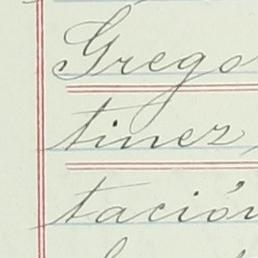 Grego
tinez,
tación